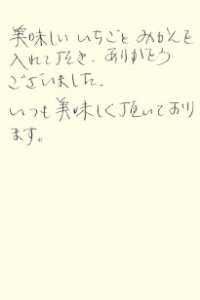 美味しい いちごと みかんを
入れて頂き、ありがとう
ございました。
いつも美味しく頂いており
ます。